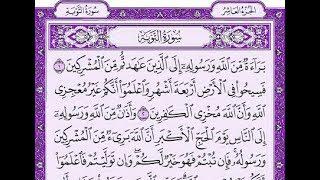 سُورَةُ التَّوۡبَةِ
الجُزۡءُ العَاشِر
سُورَةُ التَّوۡبَةِ
بَرَآءَةٞ مِّنَ ٱللَّهِ وَرَسُولِهِۦٓ إِلَى ٱلَّذِينَ عَٰهَدتُّم مِّنَ ٱلۡمُشۡرِكِينَ ١
فَسِيحُواْ فِي ٱلۡأَرۡضِ أَرۡبَعَةَ أَشۡهُرٖ وَٱعۡلَمُوٓاْ أَنَّكُمۡ غَيۡرُ مُعۡجِزِي
ٱللَّهِ وَأَنَّ ٱللَّهَ مُخۡزِي ٱلۡكَٰفِرِينَ ٢ وَأَذَٰنٞ مِّنَ ٱللَّهِ وَرَسُولِهِۦٓ
إِلَى ٱلنَّاسِ يَوۡمَ ٱلۡحَجِّ ٱلۡأَكۡبَرِ أَنَّ ٱللَّهَ بَرِيٓءٞ مِّنَ ٱلۡمُشۡرِكِينَ
وَرَسُولُهُۥۚ فَإِن تُبۡتُمۡ فَهُوَ خَيۡرٞ لَّكُمۡۖ وَإِن تَوَلَّيۡتُمۡ فَٱعۡلَمُوٓاْ